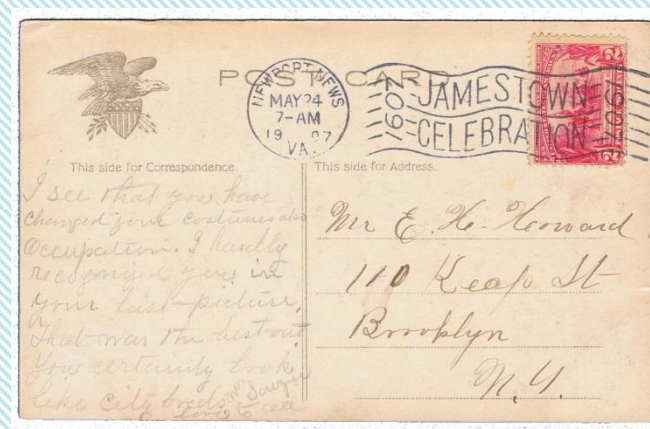 POST CARD
NEWPORT NEWS
MAY 24
7-AM
1907
VA.
1607 JAMESTOWN 1907
CELEBRATION
This side for Correspondence.
This side for Address.
I see that you have
changed your costumes also
Occupation. I hardly
recognized you in
your last picture,
That was the best out
You certainly look
like City breds
Love to all
Mr E. H. Howard
110 Keap St
Brooklyn
N.Y.